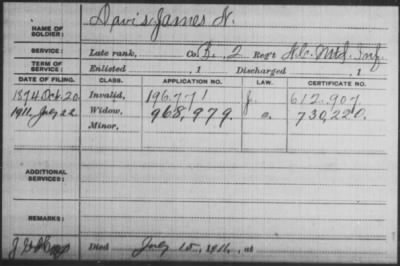 NAME OF SOLDIER: Davis, James N.
SERVICE: Late rank, Co. B, 2 Reg't Md. Inf.
TERM OF SERVICE: Enlisted , 1 Discharged , 1
DATE OF FILING. CLASS. APPLICATION NO. LAW. CERTIFICATE NO.
1874 Oct. 20 Invalid, 196771 612.907
1911, July 22 Widow, 968,979. 730,220.
Minor,
ADDITIONAL SERVICES:
REMARKS:
Died July 15, 1911, at